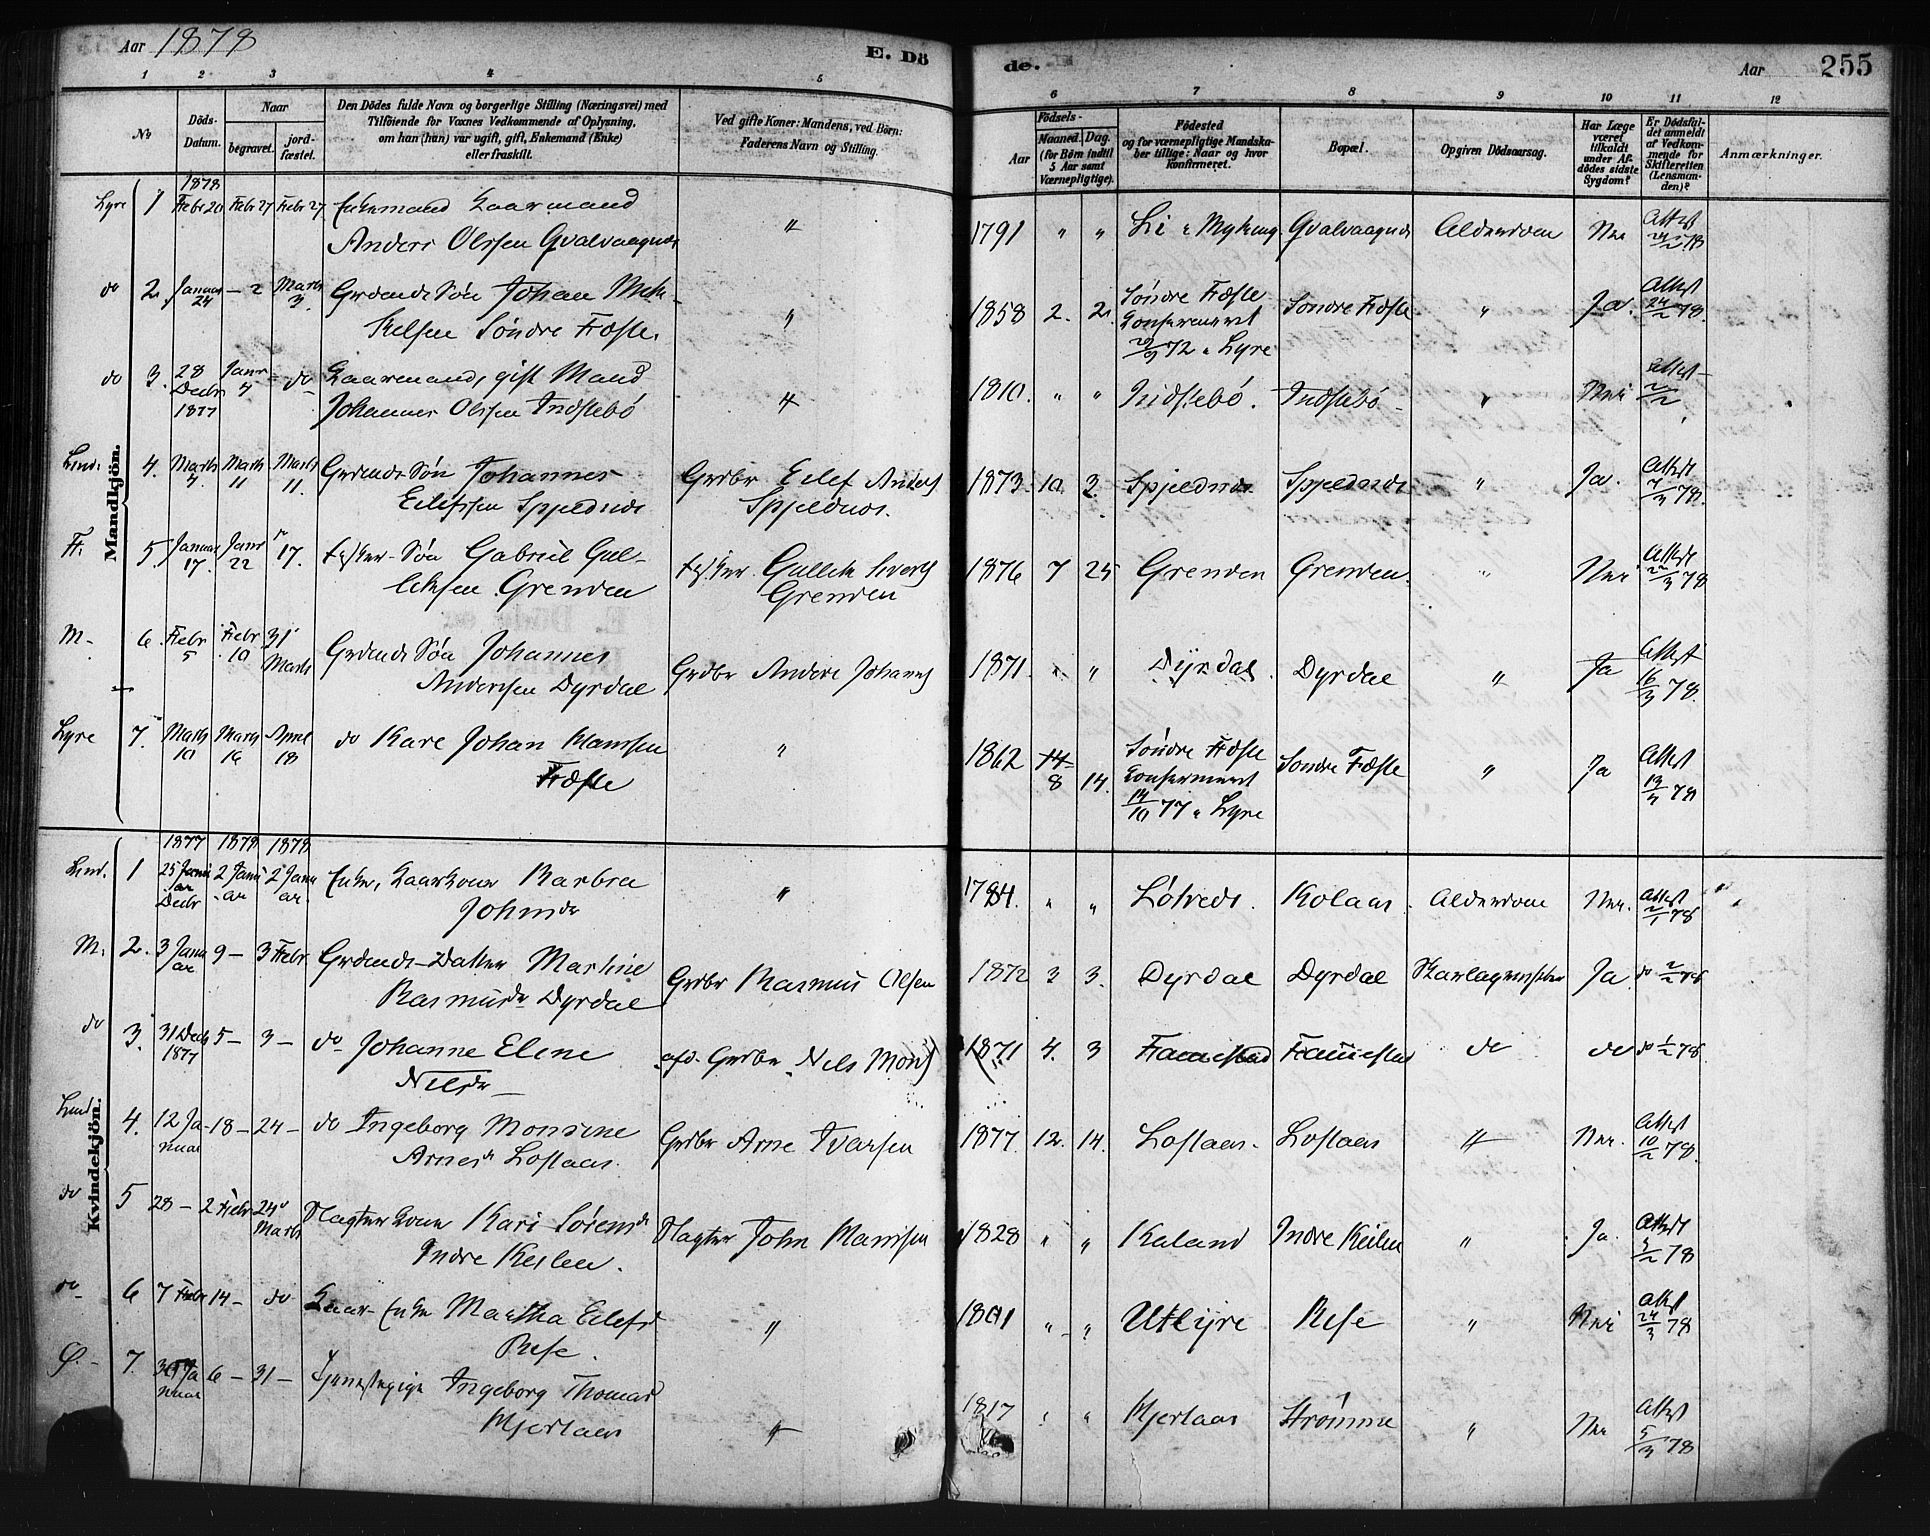 Aar 1878
E. Dö
de.
Aar
255
1 2 3 4 5
6 7 8 9 10 11 12
No
Döds-
Datum.
Naar
begravet.
jord-
fæstet.
Den Dödes fulde Navn og borgerlige Stilling (Næringsvei) med
Tilföiende for Voxnes Vedkommende af Oplysning,
om han (hun) var ugift, gift, Enkemand (Enke)
eller fraskilt.
Ved gifte Koner: Mandens, ved Börn:
Faderens Navn og Stilling.
Födsels-
Aar
Maaned. Dag.
(for Børn indtil
5 Aar samt
Værnepligtige).
Födested
og for værnepligtige Mandska-
ber tillige: Naar og hvor
konfirmeret.
Bopæl.
Opgiven Dödsaarsag.
Har Læge
været
tilkaldt
under Af-
dödes sidste
Sygdom?
Er Dödsfal-
det anmeldt
af Vedkom-
mende for
Skifteretten
(Lensman-
den)?
Anmærkninger.
Mandkjön.
1878
Lyre 1 Febr 20 Febr 27 Febr 27 Enkemand Kaarmand
Anders Olssen Gvalvaagnes " 1791 " " Li i Myking Gvalvaagnes Alderdom Nei Attest 24/2 78
do 2. Januar 24 – 2 Marts 3 Grdmds Søn Johan Mik-
kelsen Söndre Fæste. " 1858 2. 2. Söndre Fæste
Konfirmeret
/9 72 i Lyre Sondre Fæste " Ja. Attest 24/2 78.
do 3. 28 Decbr 1877 Janr 4 do Kaarmand, gift Mand
Johannes Olssen Indstebö " 1810. " " Indstebö. Indstebö " Nei Attest 2/2
Lind. 4. Marts 7. Marts 11 Marts 11. Grdmds Søn Johannes
Eilefssen Spjeldnes Grdbr Eilef Anders
Spjeldnes. 1873. 10 3. Spjeldnes Spjeldnes " Ja. Attest 7/3 78.
Fr. 5. Januar 17. Janr 22 17. Søn Gabriel Gul-
leksen Grenden Gullek Ivers
Grenden 1876 7 25 Grenden Grenden. " Nei Attest 2/3 78
M. 6. Febr 5 Febr 10 31 Marts Grdmds Søn Johannes
Andersen Dyrdal Grdbr Anders Johans 1871. " " Dyrdal. Dyrdal " Ja Attest 16/3 78.
Lyre 7. Marts 10 Marts 16 April 18 do Karl Johan Hansen
Fæste " 1862 14
8 14. Söndre Fæste
Konfirmeret
14/10 77 i Lyre Sondre Fæste " Ja Attest 13/4 78
Kvindekjön.
1877 1878 1878
Lind. 1 25 Januar
Decbr 2 Januar 2 Januar. Enke, Kaarkone Barbra
Johnsdr " 1784. " " Lötveds. Kolaas. Alderdom Nei. Attest 2/1 78
M. 2. 3 Januar 9 – 3 Febr Grdmds – Datter Martine
Rasmusdr Dyrdal Grdbr Rasmus Olsen 1872 3 3. Dyrdal Dyrdal Skarlagensfeber Ja do 2/2 78
do 3. 31 Decb 1877 5 – 3 – do Johanne Elene
Nilsdr afd. Grdbr Nils Mons 1871 4. 3 Fammestad Fammestad do do do 1/2 78.
Lind. 4. 12 Januar 18 – 24 – do Ingeborg Monsine
Arnesdr Loftaas. Grdbr Arne Ivarsen 1877. 12. 14. Loftaas. Loftaas " Nei. Attest 10/2 78.
do 5 28 – 2 Febr 24 Marts Slagter Kone Kari Sörensdr
Indre Keilen. Slagter John Hansen 1828 " " Kaland Indre Keilen " Ja. Attest 5/2 78
do 6 7 Febr 14 – do Kaar – Enke Martha Eilefsd
Rise. " 1801 " " Utlyre Rise " Nei Attest 24/3 78
Ø. 7. 30 Januar 6 – 31 – Tjenestepige Ingeborg Thomasd
Hjertaas " 1817 " " Hjertaas Strömme " Nei Attest 5/3 78